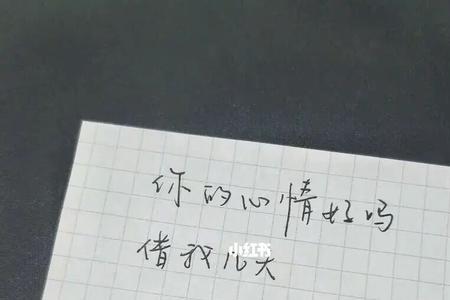 你的心情好吗
借我几天
小红书